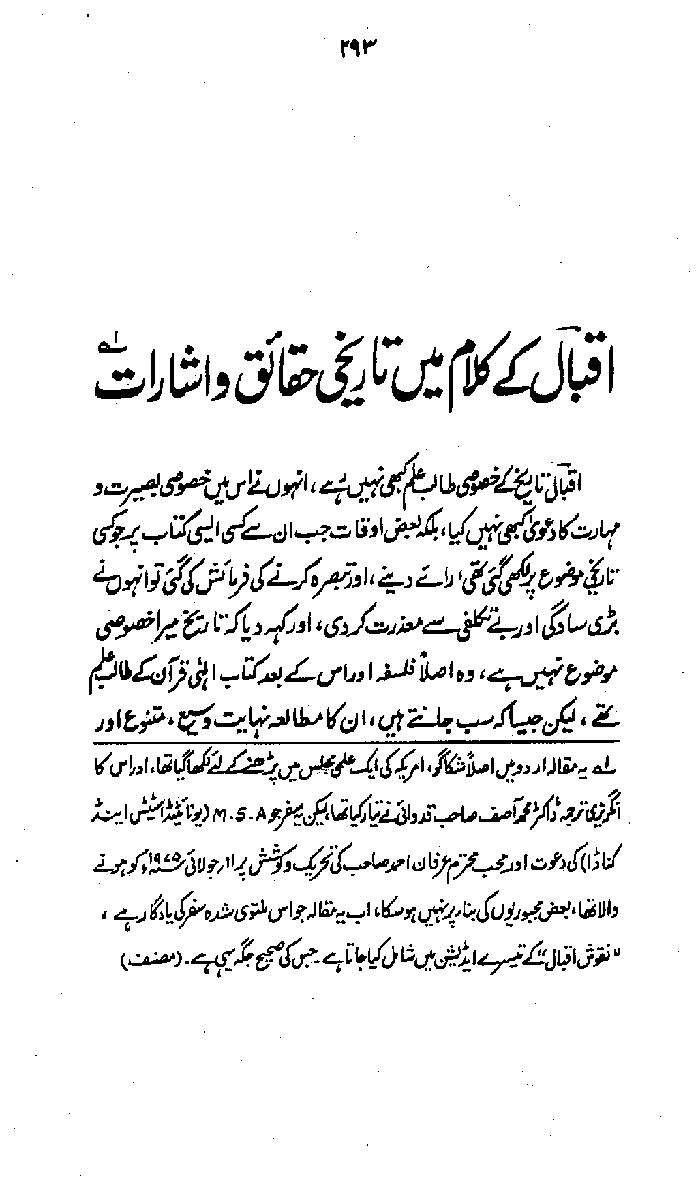 ۲۹۳
اقبالؔ کے کلام میں تاریخی حقائق و اشارات لہ
اقبالؔ تاریخ کے خصوصی طالب علم کبھی نہیں رہے، انہوں نے اس میں خصوصی بصیرت و
مہارت کا دعویٰ کبھی نہیں کیا، بلکہ بعض اوقات جب ان سے کسی ایسی کتاب پر جو کسی
تاریخی موضوع پر لکھی گئی تھی، رائے دینے، اور تبصرہ کرنے کی فرمائش کی گئی تو انہوں نے
بڑی سادگی اور بے تکلفی سے معذرت کر دی، اور کہہ دیا کہ تاریخ میرا خصوصی
موضوع نہیں ہے، وہ اصلاً فلسفہ اور اس کے بعد کتاب الٰہی قرآن کے طالب علم
تھے، لیکن جیسا کہ سب جانتے ہیں، ان کا مطالعہ نہایت وسیع، متنوع اور
لہ یہ مقالہ اردو میں اصلاً شکاگو، امریکہ کی ایک علمی مجلس میں پڑھنے کے لئے لکھا گیا تھا، اور اس کا
انگریزی ترجمہ ڈاکٹر محمد آصف صاحب قدوائی نے تیار کیا تھا، لیکن یہ سفر جو M.S.A (یونائیٹڈ اسٹیٹس اینڈ
کناڈا) کی دعوت اور محب محترم عرفان احمد صاحب کی تحریک و کوشش پر ۱۱؍جولائی ۱۹۷۵ء کو ہونے
والا تھا، بعض مجبوریوں کی بناء پر نہیں ہو سکا، اب یہ مقالہ جو اس ملتوی شدہ سفر کی یادگار ہے،
"نقوش اقبال" کے تیسرے ایڈیشن میں شامل کیا جاتا ہے۔ جس کی صحیح جگہ یہی ہے۔ (مصنف)